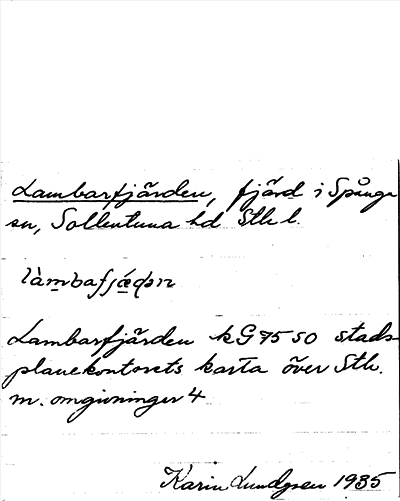 Lambarfjärden, fjärd i Spånga
sn, Sollentuna hd Sthl l.
làmbafjæ̨ɖən
Lambarfjärden kG 75 SO stads-
planekontorets karta över Sth.
m. omgivningar 4
Karin Lundgren 1935